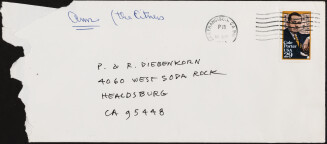 (the Others
P. & R. DIEBENKORN
4060 WEST SODA ROCK
HEALDSBURG
CA 95448
PM
Cole
Porter
USA
29